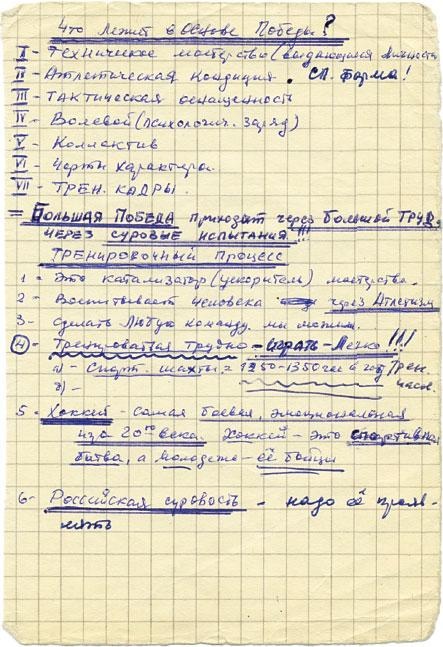 Что лежит в основе Победы?
I - Техническое мастерство (выдающаяся личность
II - Атлетическая кондиция. Сп. форма!
III - Тактическая оснащенность
IV - Волевой (психологич. заряд)
V - Коллектив
VI - Черты характера.
VII - Трен. кадры.
= Большая Победа приходит через большой Труд,
через суровые испытания!!!
Тренировочный процесс
1 - Это катализатор (ускоритель) мастерства.
2 - Воспитывает человека через Атлетизм
3 - Сделать любую команду мы можем.
4 - Тренироваться трудно - играть - легко!!!
а) - Спорт. шахты = 1250-1350 час в год Трен.
часов.
б) -
5 - Хоккей - самая боевая, эмоциональная
игра 20го века. Хоккей - это спортивная
битва, а молодежь - её бойцы
6 - Российская суровость - надо её прояв-
лять